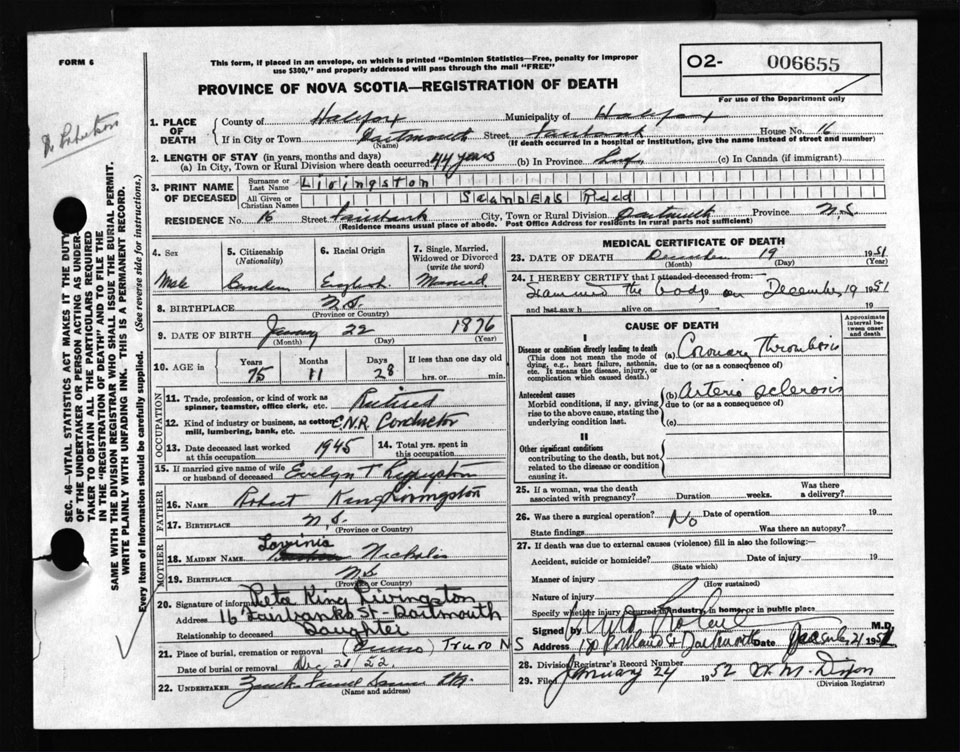 FORM 6
This form, if placed in an envelope, on which is printed "Dominion Statistics—Free, penalty for improper
use $300," and properly addressed will pass through the mail "FREE"
O2- 006655
For use of the Department only
PROVINCE OF NOVA SCOTIA—REGISTRATION OF DEATH
1. PLACE OF DEATH
County of Halifax Municipality of Halifax
If in City or Town Dartmouth Street Fairbank House No. 16
(Name) (If death occurred in a hospital or institution, give the name instead of street and number)
2. LENGTH OF STAY (in years, months and days)
(a) In City, Town or Rural Division where death occurred 44 years (b) In Province (c) In Canada (if immigrant)
3. PRINT NAME OF DECEASED
Surname or Last Name Livingston
All Given or Christian Names Saunders Reed
RESIDENCE No. 16 Street Fairbank City, Town or Rural Division Dartmouth Province N.S.
(Residence means usual place of abode. Post Office Address for residents in rural parts not sufficient)
4. Sex 5. Citizenship (Nationality) 6. Racial Origin 7. Single, Married, Widowed or Divorced (write the word)
Male Canadian English Married
8. BIRTHPLACE N.S.
(Province or Country)
9. DATE OF BIRTH January 22 1876
(Month) (Day) (Year)
10. AGE in Years Months Days If less than one day old
75 11 28 hrs. or min.
OCCUPATION
11. Trade, profession, or kind of work as spinner, teamster, office clerk, etc. Retired
12. Kind of industry or business, as cotton mill, lumbering, bank, etc. C.N.R Conductor
13. Date deceased last worked at this occupation 1945 14. Total yrs. spent in this occupation
15. If married give name of wife or husband of deceased Evelyn T Livingston
FATHER
16. NAME Robert King Livingston
17. BIRTHPLACE N.S.
(Province or Country)
MOTHER
18. MAIDEN NAME Lavinia Nickolis
19. BIRTHPLACE N.S.
(Province or Country)
20. Signature of informant Reta King Livingston
Address 16 Fairbanks St - Dartmouth
Relationship to deceased Daughter
21. Place of burial, cremation or removal (Truro) Truro NS
Date of burial or removal Dec 21/
22. UNDERTAKER
(Name and address)
MEDICAL CERTIFICATE OF DEATH
23. DATE OF DEATH December 19 1951
(Month) (Day) (Year)
24. I HEREBY CERTIFY that I attended deceased from: 19
Examined the body on December 19 1951
and last saw h alive on 19
CAUSE OF DEATH
Approximate interval between onset and death
I
Disease or condition directly leading to death (a) Coronary Thrombosis
(This does not mean the mode of dying, e.g., heart failure, asthenia, etc. It means the disease, injury, or complication which caused death.)
due to (or as a consequence of)
Antecedent causes (b) Arterio sclerosis
Morbid conditions, if any, giving rise to the above cause, stating the underlying condition last.
due to (or as a consequence of)
(c)
II
Other significant conditions
contributing to the death, but not related to the disease or condition causing it.
25. If a woman, was the death associated with pregnancy? Duration weeks. Was there a delivery?
26. Was there a surgical operation? No Date of operation 19
State findings Was there an autopsy?
27. If death was due to external causes (violence) fill in also the following:—
Accident, suicide or homicide? Date of injury 19
(State which)
Manner of injury
(How sustained)
Nature of injury
Specify whether injury occurred in industry, in home, or in public place
Signed by M.D.
Address 180 Portland St Dartmouth Date December 21 1951
28. Division Registrar's Record Number
29. Filed January 24 1952
(Division Registrar)
SEC. 46—VITAL STATISTICS ACT MAKES IT THE DUTY
OF THE UNDERTAKER OR PERSON ACTING AS UNDERTAKER
TO OBTAIN ALL THE PARTICULARS REQUIRED
IN THE "REGISTRATION OF DEATH" AND TO FILE THE
SAME WITH THE DIVISION REGISTRAR WHO SHALL ISSUE THE BURIAL PERMIT.
WRITE PLAINLY WITH UNFADING INK. THIS IS A PERMANENT RECORD.
Every item of Information should be carefully supplied. (See reverse side for instructions.)